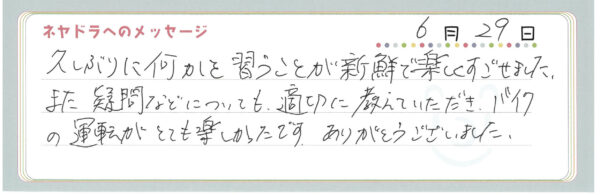 ネヤドラへのメッセージ
6月29日
久しぶりに何かを習うことが新鮮で楽しくすごせました。
また疑問などについても、適切に教えていただき、バイク
の運転がとても楽しかったです ありがとうございました。